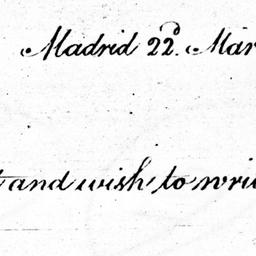 Madrid 22d. Mar
and wish to wri